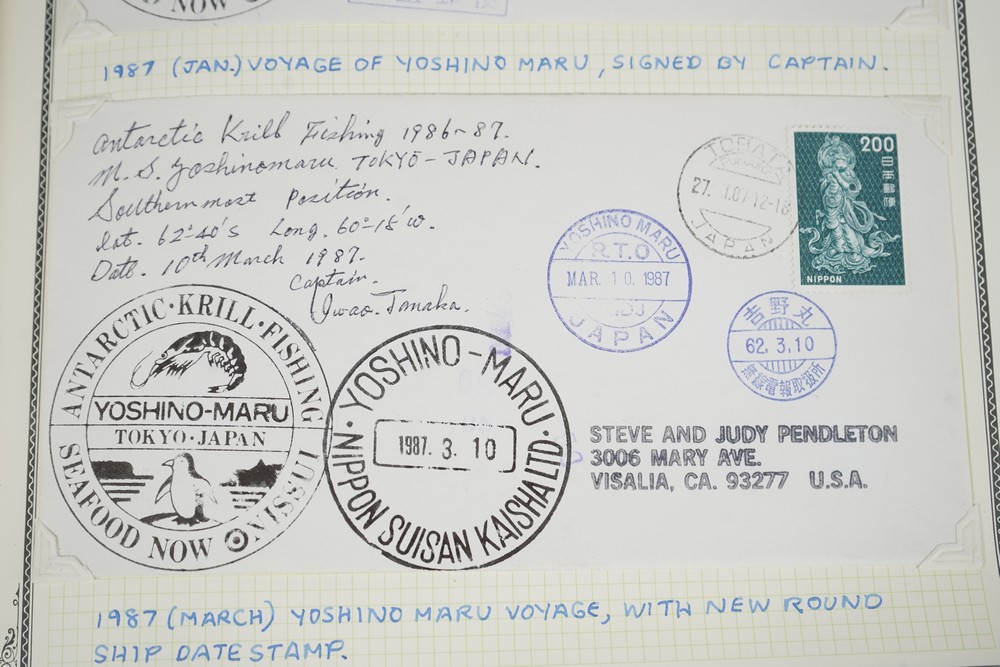 NOW
1987 (JAN.) VOYAGE OF YOSHINO MARU, SIGNED BY CAPTAIN.
Antarctic Krill Fishing 1986~87.
M. S. Yoshinomaru. TOKYO-JAPAN.
Southernmost Position.
Lat. 62°40's Long. 60°18'w.
Date. 10th March 1987.
Captain.
Iwao. Tanaka.
200
日本郵便
NIPPON
27. 12-18
JAPAN
YOSHINO MARU
R.T.O
MAR. 10. 1987
JAPAN
吉野丸
62. 3. 10
無線電報取扱所
ANTARCTIC·KRILL·FISHING
YOSHINO-MARU
TOKYO·JAPAN
SEAFOOD NOW NISSUI
·YOSHINO-MARU·
1987. 3. 10
NIPPON SUISAN KAISHA LTD
STEVE AND JUDY PENDLETON
3006 MARY AVE.
VISALIA, CA. 93277 U.S.A.
1987 (MARCH) YOSHINO MARU VOYAGE, WITH NEW ROUND
SHIP DATESTAMP.